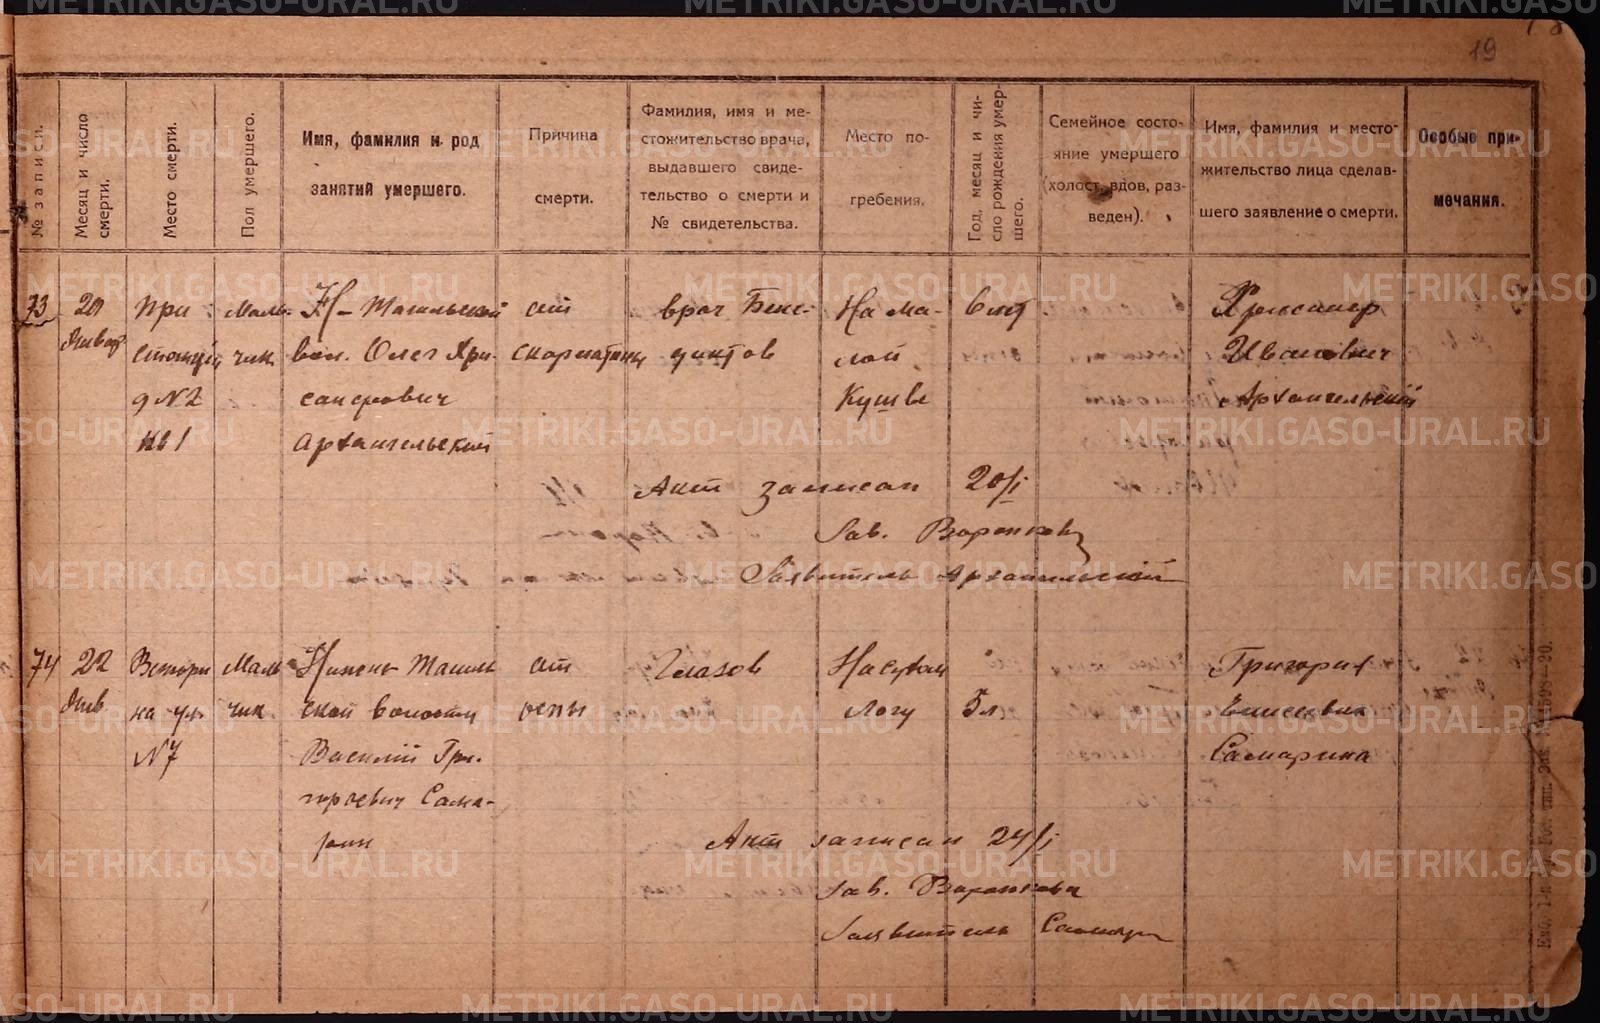 19
№ записи.
Месяц и число смерти.
Место смерти.
Пол умершего.
Имя, фамилия и род
занятий умершего.
Причина
смерти.
Фамилия, имя и ме-
стожительство врача,
выдавшего свиде-
тельство о смерти и
№ свидетельства.
Место по-
гребения.
Год, месяц и чи-
сло рождения умер-
шего.
Семейное состо-
яние умершего
(холост, вдов, раз-
веден).
Имя, фамилия и место-
жительство лица сделав-
шего заявление о смерти.
Особые при-
мечания.
73
20
Январ
При
станции
д №2
кв 1
Маль-
чик
Н-Тагильской
вол. Олег Хри-
санфович
Архангельский
от
скарлатины
врач Бене-
диктов
На ма-
лой
Кушве
6 лет
Хрисанф
Иванович
Архангельский
Акт записан 20/I
Зав.
Заявитель Архангельский
74
22
Янв.
на ул
№7
Маль-
чик
Нижне-Тагиль
ской волости
Василий Гри-
горьевич Сама-
рин
от
оспы
Глазов
На сухом
Логу
5 л
Григорий
Елисеевич
Самарина
Акт записан 24/I
Зав.
Заявитель
METRIKI.GASO-URAL.RU